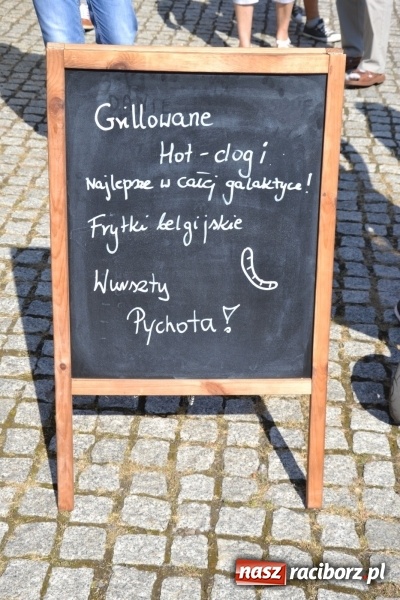 Grillowane
Hot-dogi
Najlepsze w całej galaktyce!
Frytki belgijskie
Wurszty
Pychota!
nasz raciborz.pl